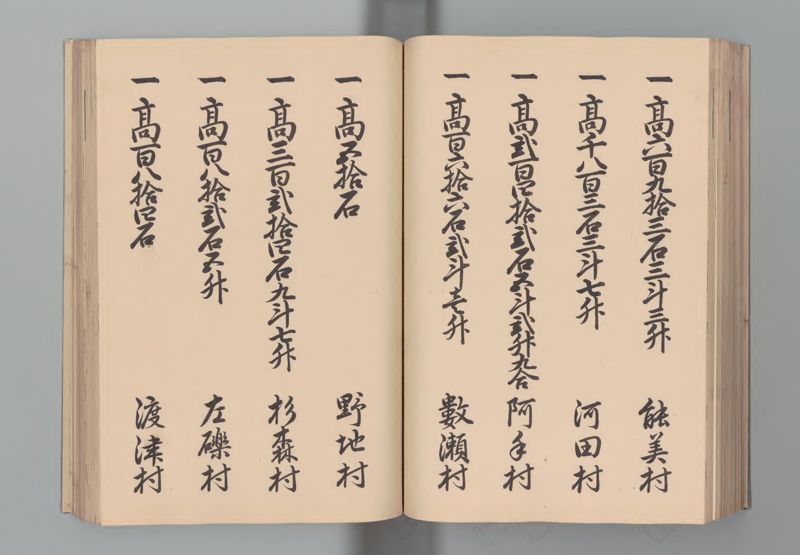 一 高六百九拾三石三斗三升 能美村
一 高千八百三石三斗七升 河田村
一 高弐百四拾弐石五斗弐升九合 阿手村
一 高百六拾六石弐斗壱升 数瀬村
一 高五拾石 野地村
一 高三百弐拾四石九斗七升 杉森村
一 高百八拾弐石五升 左礫村
一 高百八拾四石 渡津村